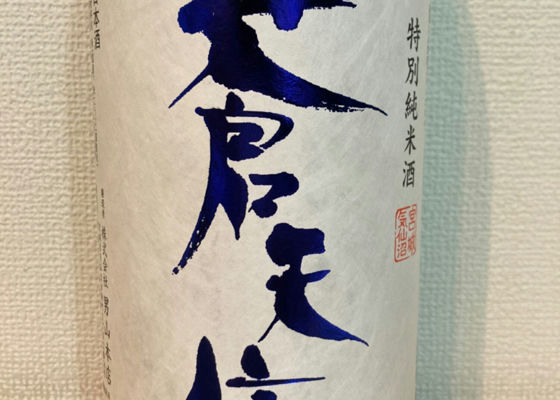 特別純米酒
宮城
気仙沼
蒼天
本酒
株式会社 男山本店